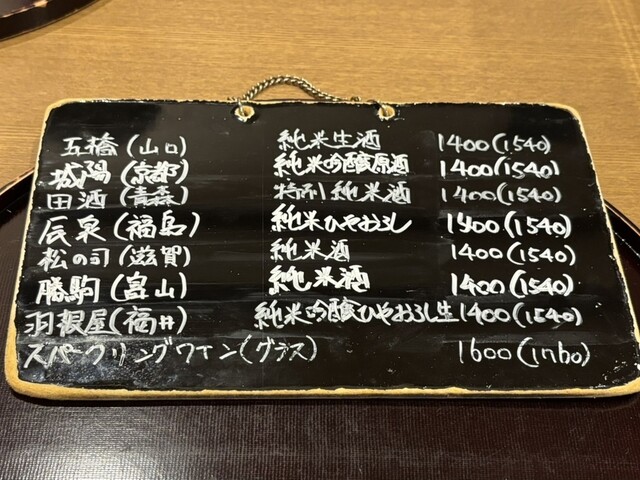 五橋(山口) 純米生酒 1400(1540)
城陽(京都) 純米吟醸原酒 1400(1540)
田酒(青森) 特別純米酒 1400(1540)
辰泉(福島) 純米ひやおろし 1400(1540)
松の司(滋賀) 純米酒 1400(1540)
勝駒(富山) 純米酒 1400(1540)
羽根屋(福井) 純米吟醸ひやおろし生 1400(1540)
スパークリングワイン(グラス) 1600(1760)